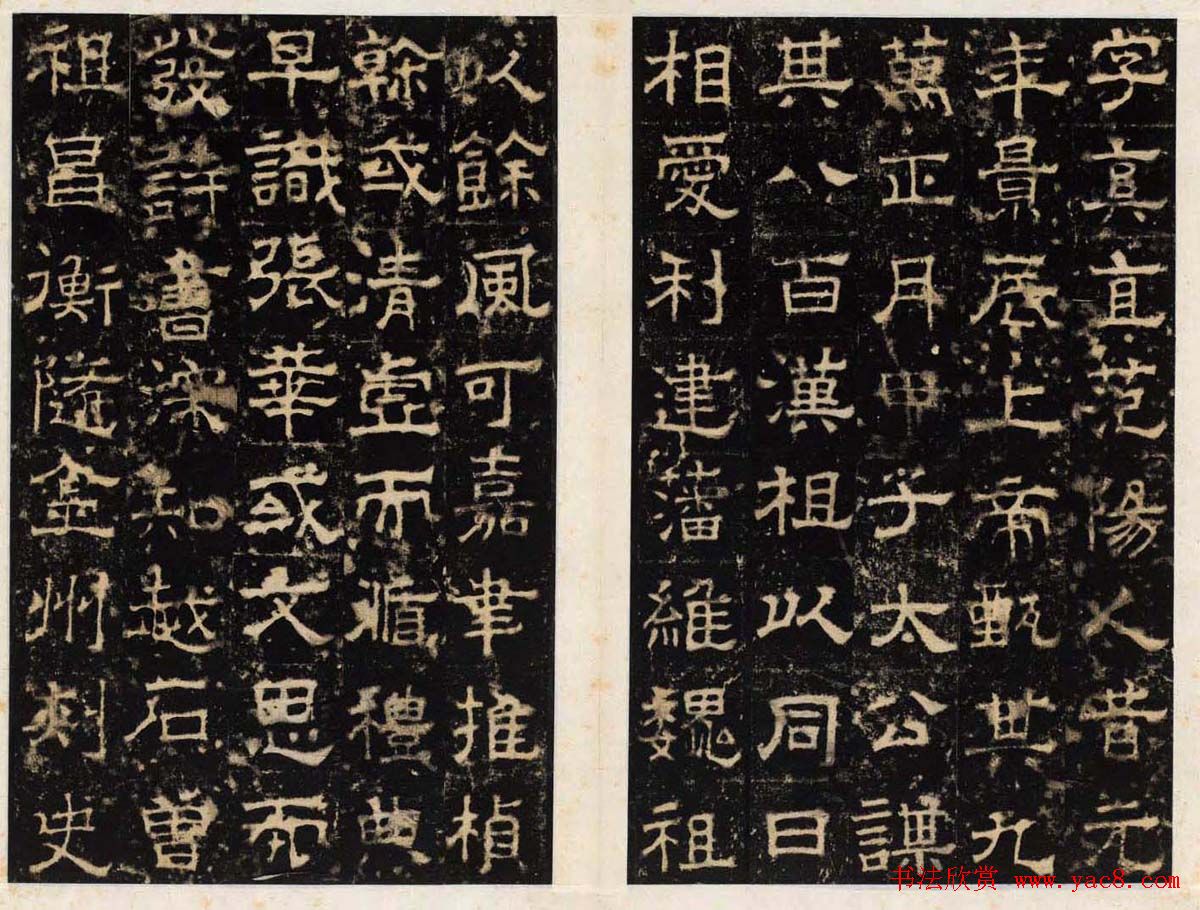 字真直范陽人昔元
年景辰上帝甄其九
萬正月甲子太公謀
其八百漢祖以同日
相愛利建藩維魏祖
以餘風可嘉聿推楨
榦或清虛而循禮典
早識張華或文思而
發詩書深知越石曾
祖昌衡隨金州刺史
书法欣赏 www.yac8.com